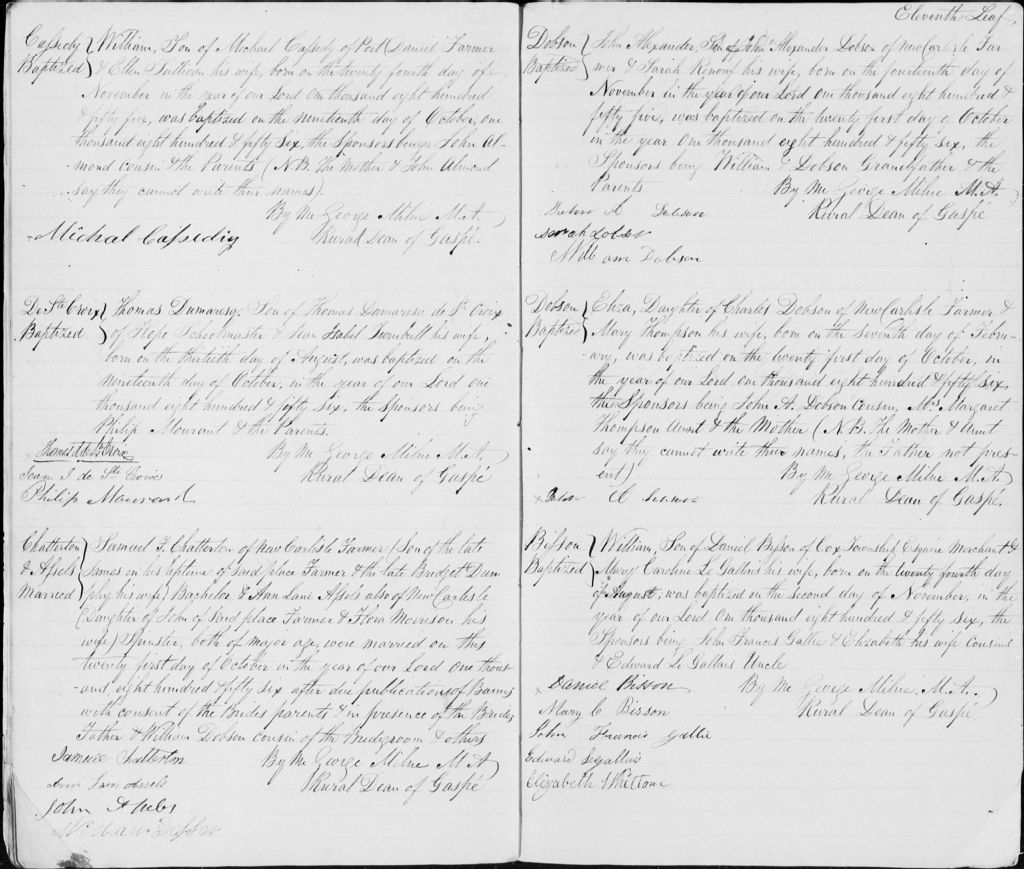 Cassedy Baptized } William, Son of Michael Cassedy of Port Daniel Farmer
& Ellen Sullivan his wife, born on the twenty fourth day of
November in the year of our Lord One thousand eight hundred
& fifty five, was baptized on the nineteenth day of October, one
thousand eight hundred & fifty six, the Sponsors being John Al-
mond cousin & the Parents (N.B. the Mother & John Almond
say they cannot write their names).
By Me George Milne M.A.
Rural Dean of Gaspé.
Michal Cassediy
De Ste Croix Baptized } Thomas Dumaresq, Son of Thomas Dumaresq de St Croix
of Hope Schoolmaster & Isabel Turnbull his wife,
born on the thirtieth day of August, was baptized on the
nineteenth day of October, in the year of our Lord one
thousand eight hundred & fifty six, the Sponsors being
Philip Mourant & the Parents.
By Me George Milne M.A.
Rural Dean of Gaspé
Thomas de St Croix
Jean I. de Ste Croix
Philip Mourand
Chatterton & Assels Married } Samuel F. Chatterton of New Carlisle Farmer (Son of the late
James in his lifetime of said place Farmer & the late Bridget Dun
phy his wife) Bachelor & Ann Lane Assels also of New Carlisle
(Daughter of John of said place Farmer & Flora Morrison his
wife) Spinster, both of major age, were married on this
twenty first day of October in the year of our Lord One thous-
-and, eight hundred & fifty six after due publications of Banns
with consent of the Brides parents & in presence of the Brides
Father & William Dobson cousin of the Bridegroom & others
By Me George Milne M.A.
Rural Dean of Gaspé
Samuel Chatterton
Ann
John Assels
Dobson
Eleventh Leaf,
Dobson Baptized } John Alexander, Son of John Alexander Dobson of New Carlisle Far-
mer & Sarah Renouf his wife, born on the fourteenth day of
November in the year of our Lord One thousand eight hundred &
fifty five, was baptized on the twenty first day of October
in the year One thousand eight hundred & fifty six, the
Sponsors being William Dobson Grandfather & the
Parents
By Me George Milne M.A.
Rural Dean of Gaspé
A Dobson
Sarah Dobson
William Dobson
Dobson Baptized } Eliza, Daughter of Charles Dobson of New Carlisle Farmer &
Mary Thompson his wife, born on the seventh day of Febru-
ary, was baptized on the twenty first day of October, in
the year of our Lord one thousand eight hundred & fifty six,
the Sponsors being John A. Dobson Cousin, Mrs Margaret
Thompson Aunt & the Mother (N.B. The Mother & Aunt
say they cannot write their names, the Father not pres-
ent).
By Me George Milne M.A.
Rural Dean of Gaspé.
Bisson Baptized } William, Son of Daniel Bisson of Cox Township Esquire Merchant &
Mary Caroline Le Gallais his wife, born on the twenty fourth day
of August, was baptized on the second day of November, in the
year of our Lord One thousand eight hundred & fifty six, the
Sponsors being John Francis Gallie & Elizabeth his wife Cousins
& Edward Le Gallais Uncle
By Me George Milne, M.A.
Rural Dean of Gaspé
Daniel Bisson
Mary C Bisson
John Francis Gallie
Edward Legallais
Elizabeth Whittom